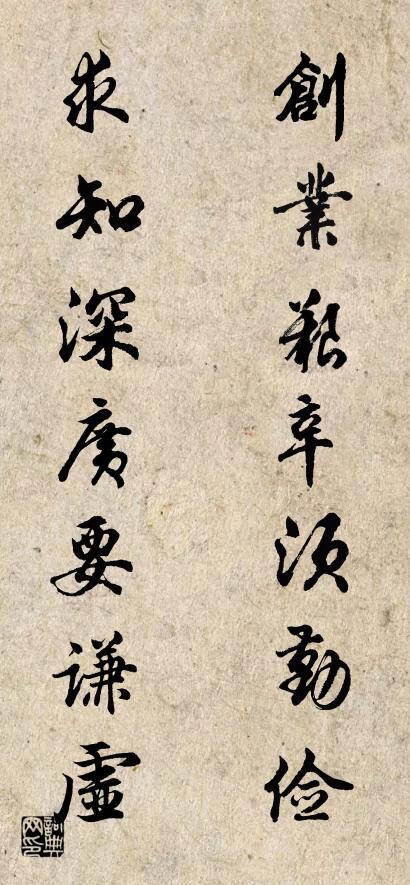 創業艱辛須勤俭
求知深廣要谦虛